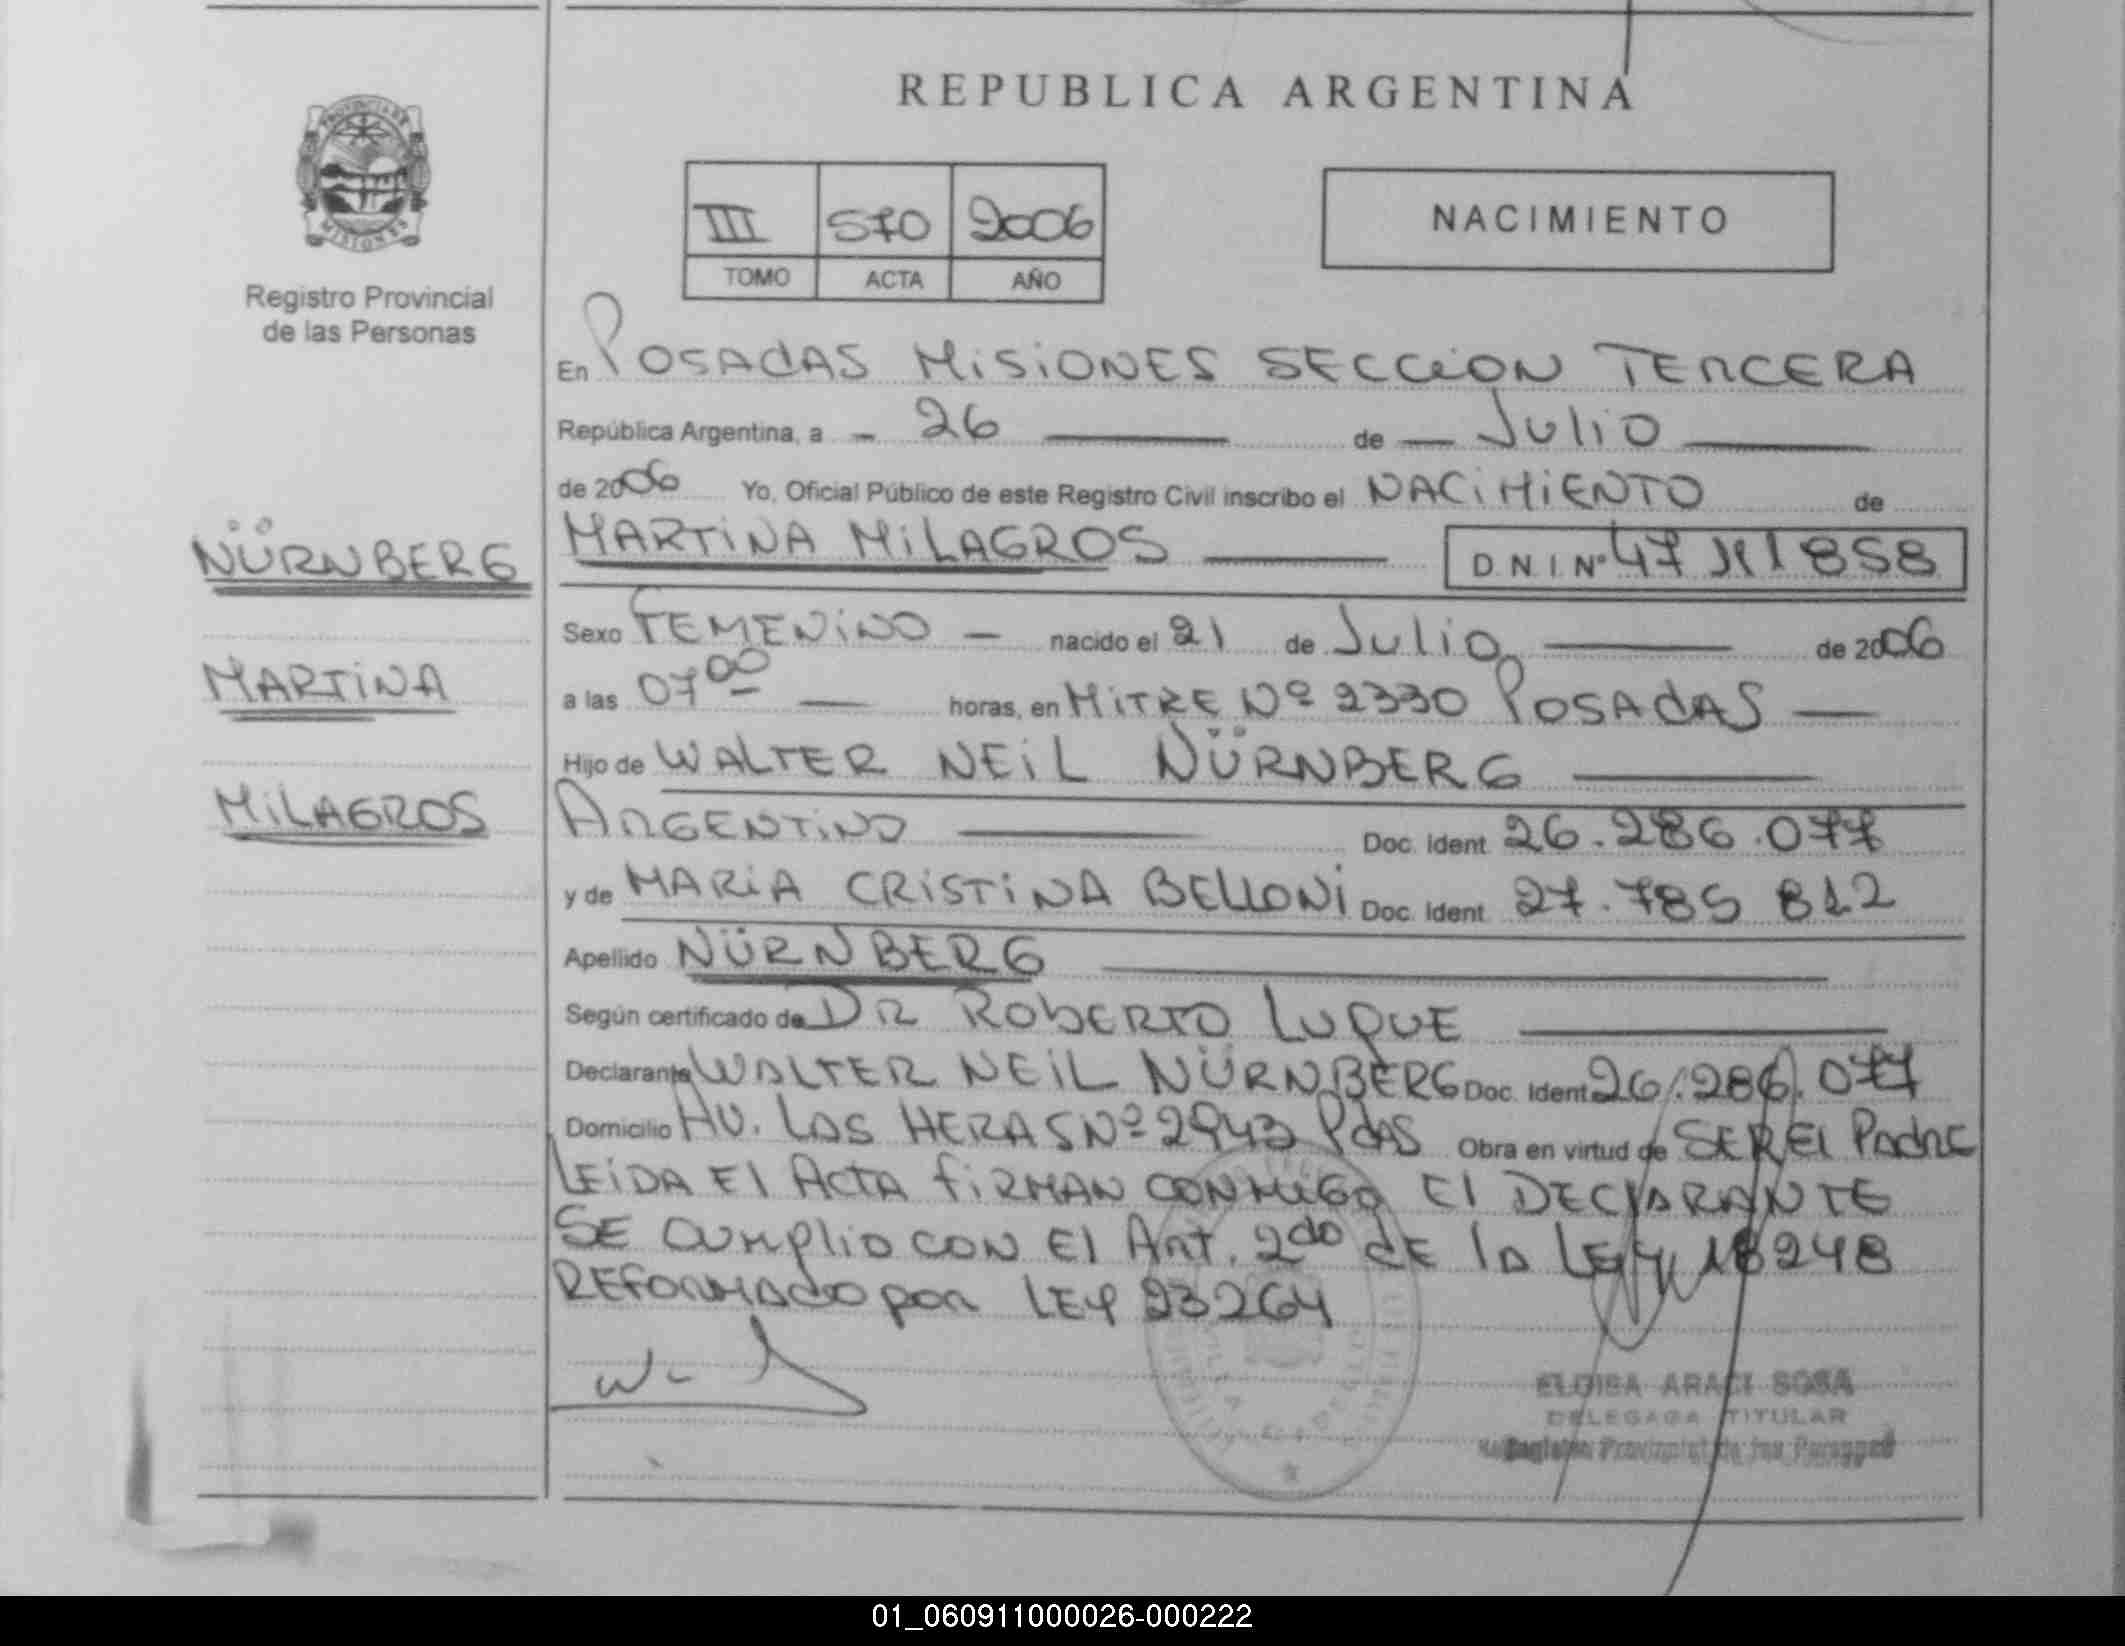 REPUBLICA ARGENTINA
PROVINCIA DE
MISIONES
Registro Provincial
de las Personas
III 570 2006
TOMO ACTA AÑO
NACIMIENTO
En POSADAS MISIONES SECCION TERCERA
República Argentina, a - 26 — de — Julio —
de 2006 Yo, Oficial Público de este Registro Civil inscribo el NACIMIENTO de
NÜRNBERG
MARTINA
MILAGROS
MARTINA MILAGROS — D.N.I Nº 47 858
Sexo FEMENINO — nacido el 21 de Julio — de 2006
a las 07 00 — horas, en MITRE Nº 2330 POSADAS —
Hijo de WALTER NEIL NÜRNBERG —
ARGENTINO — Doc. Ident. 26.286.077
y de MARIA CRISTINA BELLONI Doc. Ident. 27.785 812
Apellido NÜRNBERG —
Según certificado de DR ROBERTO LUQUE —
Declarante WALTER NEIL NÜRNBERG Doc. Ident. 26.286.077
Domicilio AV. LAS HERAS Nº 2943 PdAS Obra en virtud de SER El PAdRE
LEIDA El ACTA FIRMAN CONMIGO El DECLARANTE
SE CUMPLIO CON El ART. 2do dE lA LEY 18248
REFORMADO POR LEY 23264
ELOISA ARACI SOSA
DELEGADA TITULAR
Registro Provincial de las Personas
01_060911000026-000222